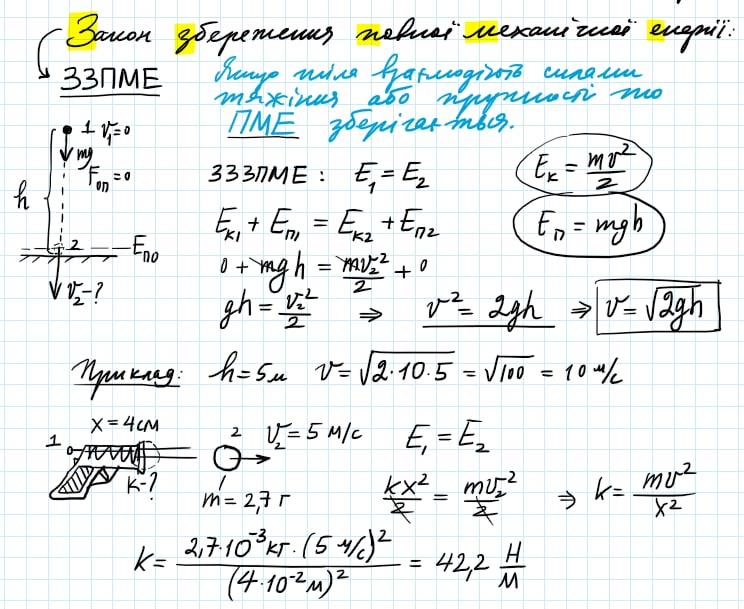 Закон збереження повної механічної енергії:
ЗЗПМЕ
Якщо тіла взаємодіють силами
тяжіння або пружності то
ПМЕ зберігається.
1 v₁=0
mg
Fоп=0
h
2
Eп0
v₂-?
ЗЗЗПМЕ: E₁=E₂
Eк₁+Eп₁=Eк₂+Eп₂
0+mgh=mv₂²/2+0
gh=v₂²/2 ⇒ v²=2gh ⇒ v=√2gh
Eк=mv²/2
Eп=mgh
Приклад: h=5м v=√2·10·5=√100=10 м/с
x=4см
1
k-?
2 v₂=5 м/с
m=2,7 г
E₁=E₂
kx²/2=mv₂²/2 ⇒ k=mv²/x²
k=2,7·10⁻³кг·(5 м/с)²/(4·10⁻²м)²=42,2 Н/м